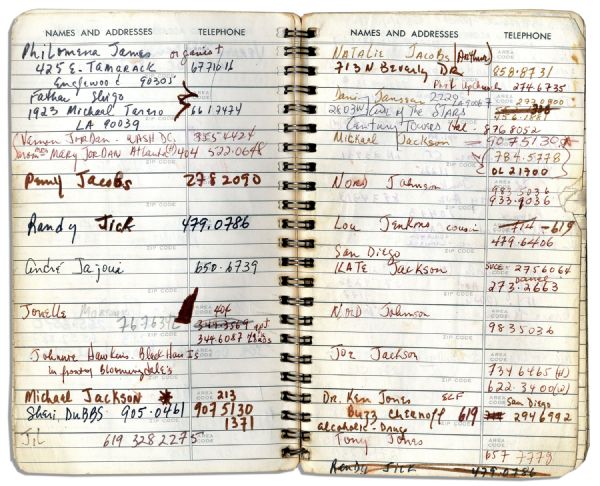 NAMES AND ADDRESSES TELEPHONE
Philomena James organist
425 E. Tamarack 6771016
Englewood 90305
Father Sligo
1923 Michael Tarero 6617474
LA 90039
(Vernon Jordan - WASH DC. 955 4424
MARY JORDAN Atlanta (H) 404 522.0648
Penny Jacobs 278 2090
Randy Jick 479.0786
André 650.6739
Jonelle 404
767639
344.6087
Johnnie Hawkins. Black Hair IS
in front of Bloomingdale's
Michael Jackson * 213
Sheri, DUBBS 905.0461 907 5130
1371
Jil 619 328 2275
NAMES AND ADDRESSES TELEPHONE
NATALIE Jacobs (Arthur)
713 N Beverly DR. 858.8731
274.6735
Danny Janssen 2220
2603 W of The STARS
Century Towers 876 8052
Michael Jackson 907 5130
784.5778
OL 21700
Nord Johnson 983 5036
933.9036
Lou Jenkins cousin 714 - 619
479.6406
San Diego
KATE Jackson 275 6064
273.2663
Nord Johnson
983 5036
Joe Jackson
734 6465 (H)
622.3400 (W)
Dr. Ken Jones San Diego
Buzz Chernoff 619 294 6992
alcoholic - Drugs
Tony Jones
657 7779
Randy Jick 479.0786